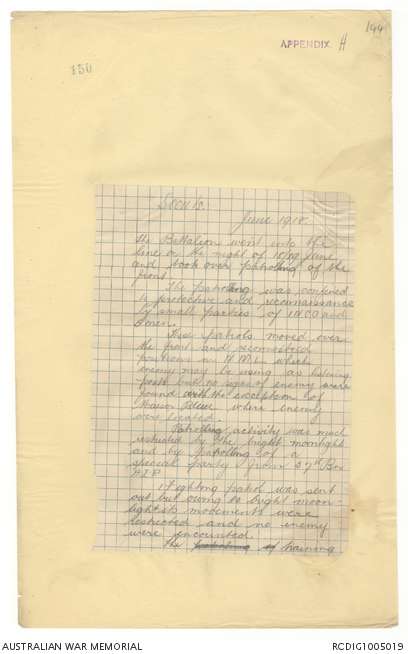 144
APPENDIX H
150
Scouts.
June 1918.
The Battalion went into the
line on the night of 18/19 June
and took over patrolling of the
front.
The patrolling was confined
to protective and reconnaissance
by small parties of 1 NCO and
6 men.
These patrols moved over
the front and reconnoitred
positions in N.M.L. which
enemy may be using as listening
posts but no signs of enemy were
found with the exception of
where enemy
was located.
Patrolling activity was much
restricted by the bright moonlight
and by patrolling of a
special party from 37th Bn
A.I.F.
1 Fighting patrol was sent
out but owing to bright moon-
light its movements were
restricted and no enemy
were encounted.
The patrolling of training
AUSTRALIAN WAR MEMORIAL
RCDIG1005019